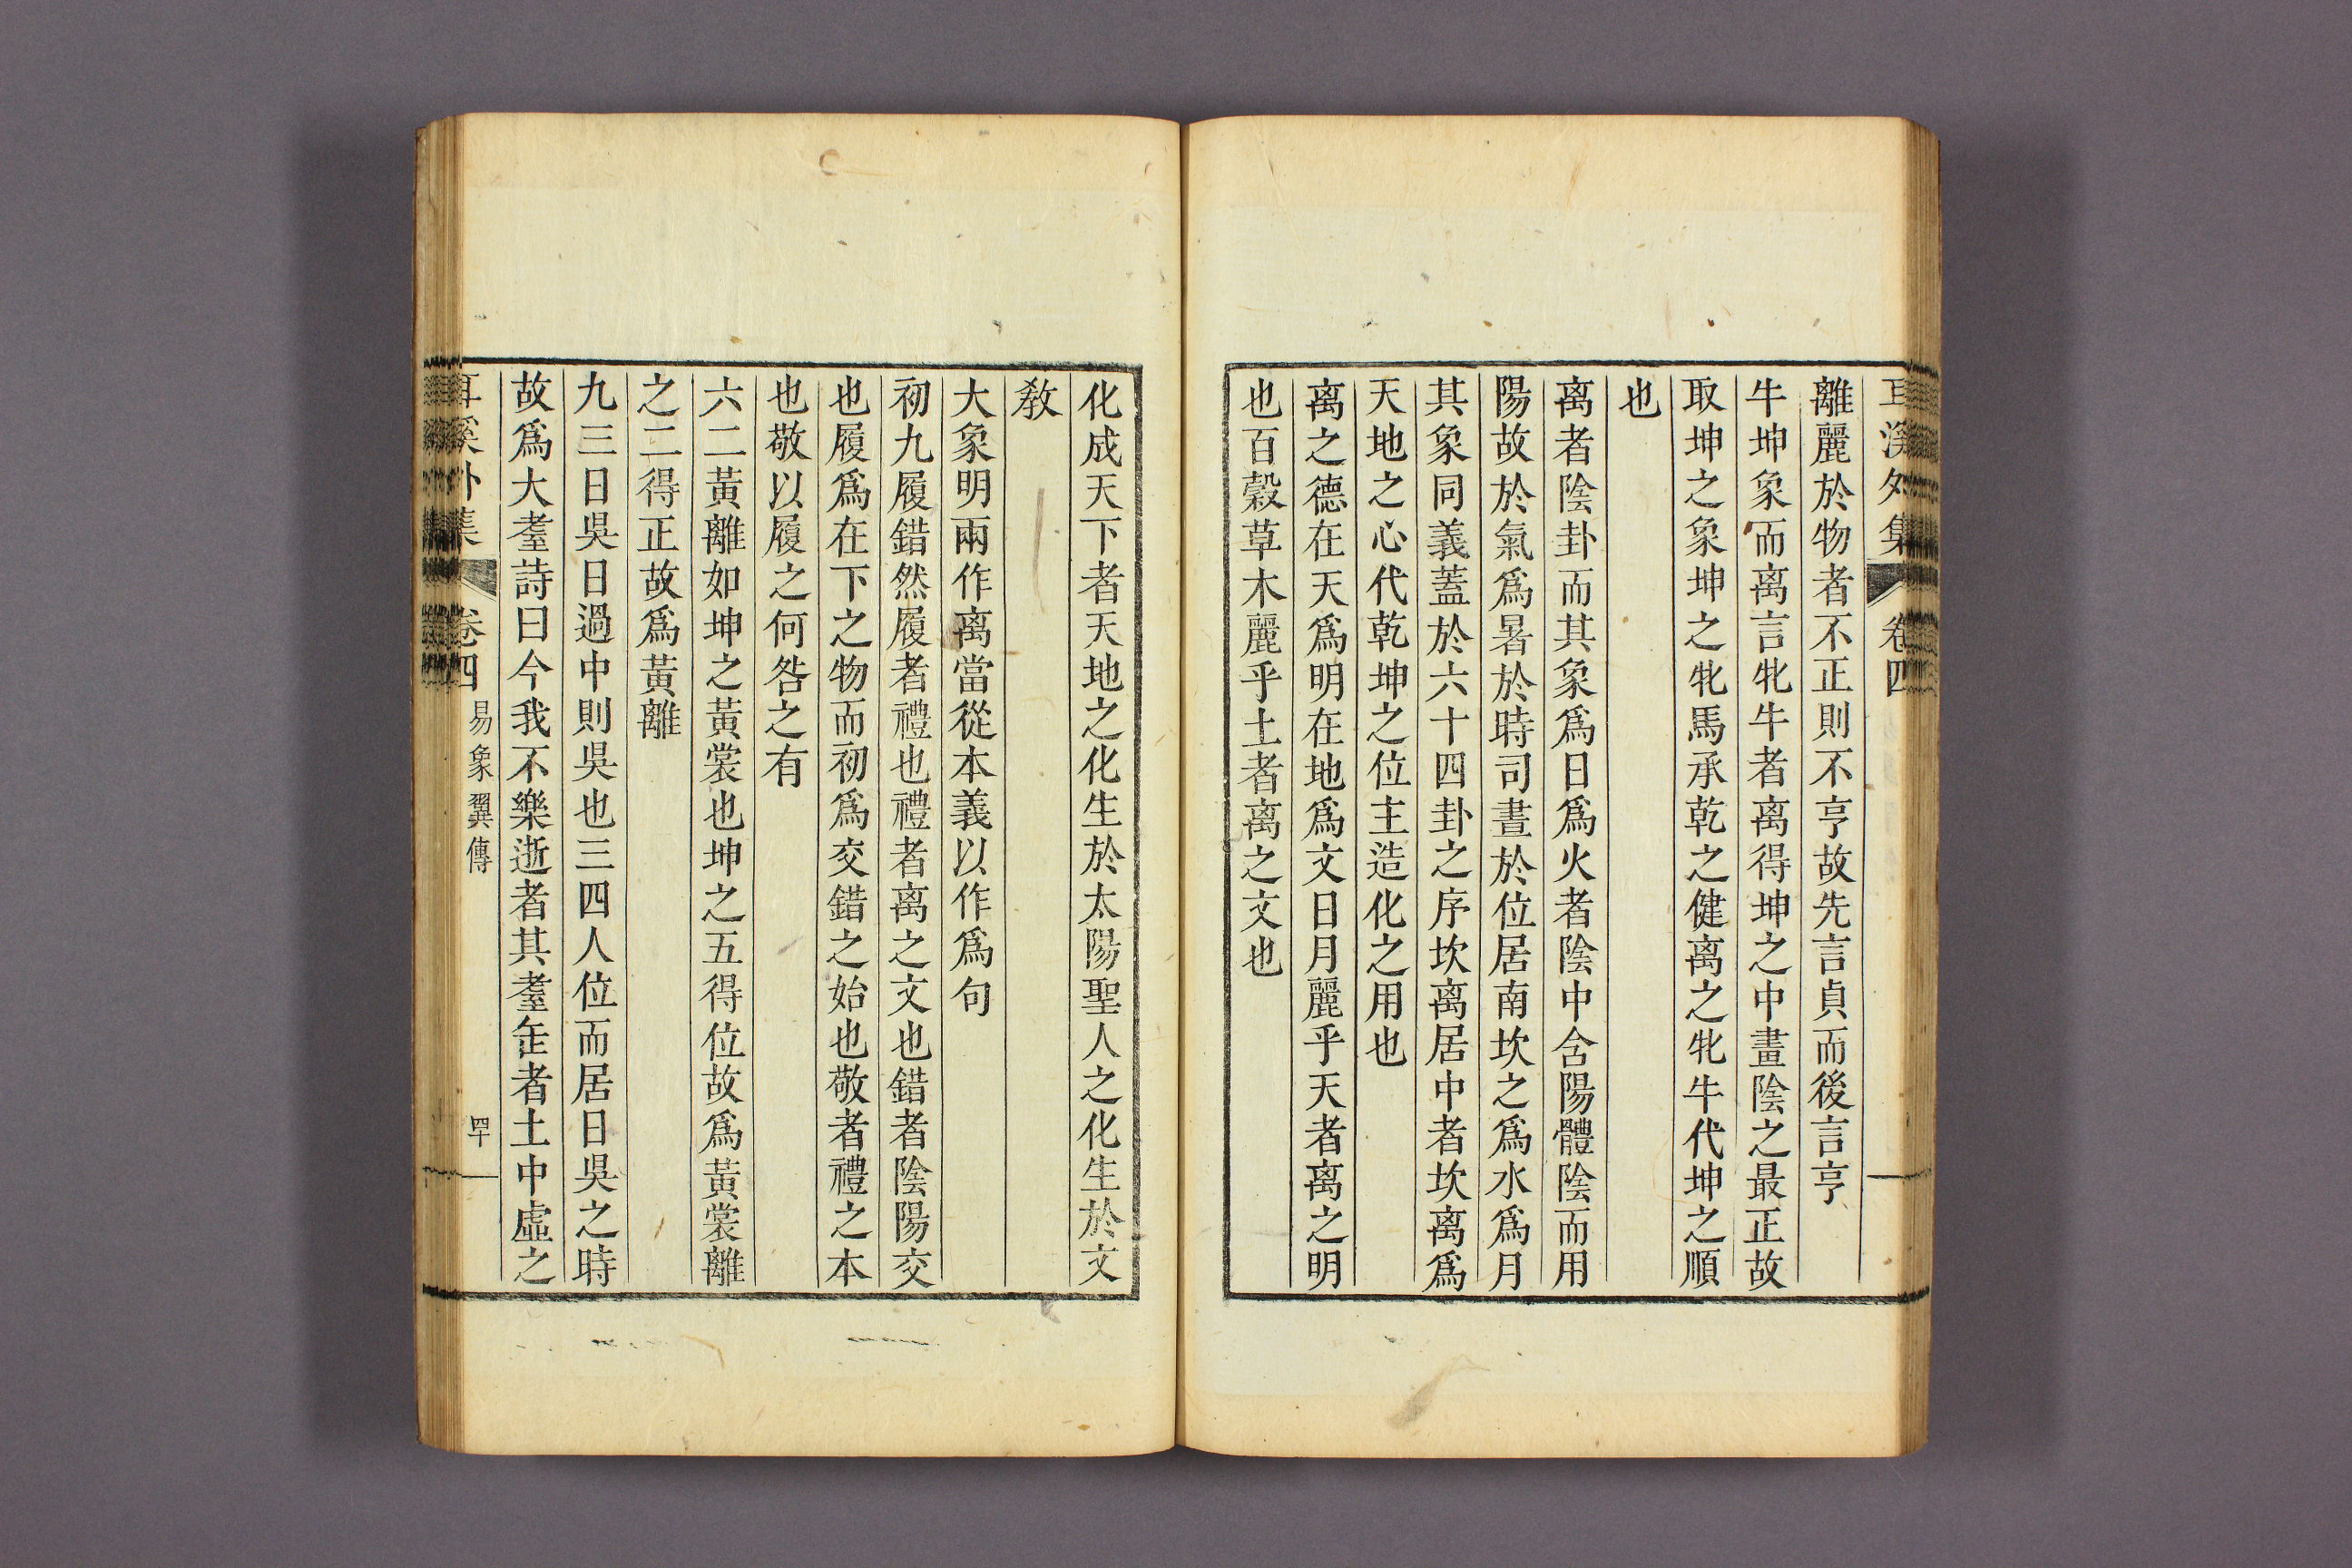 耳溪外集 卷四
離麗於物者不正則不亨故先言貞而後言亨
牛坤象而离言牝牛者离得坤之中畫陰之最正故
取坤之象坤之牝馬承乾之健离之牝牛代坤之順
也
离者陰卦而其象爲日爲火者陰中含陽體陰而用
陽故於氣爲暑於時司晝於位居南坎之爲水爲月
其象同義蓋於六十四卦之序坎离居中者坎离爲
天地之心代乾坤之位主造化之用也
离之德在天爲明在地爲文日月麗乎天者离之明
也百穀草木麗乎土者离之文也
化成天下者天地之化生於太陽聖人之化生於文
敎
大象明兩作离當從本義以作爲句
初九履錯然履者禮也禮者离之文也錯者陰陽交
也履爲在下之物而初爲交錯之始也敬者禮之本
也敬以履之何咎之有
六二黃離如坤之黃裳也坤之五得位故爲黃裳離
之二得正故爲黃離
九三日吳日過中則吳也三四人位而居日吳之時
故爲大耋詩曰今我不樂逝者其耋缶者土中虛之
耳溪外集 卷四 易象翼傳 四十